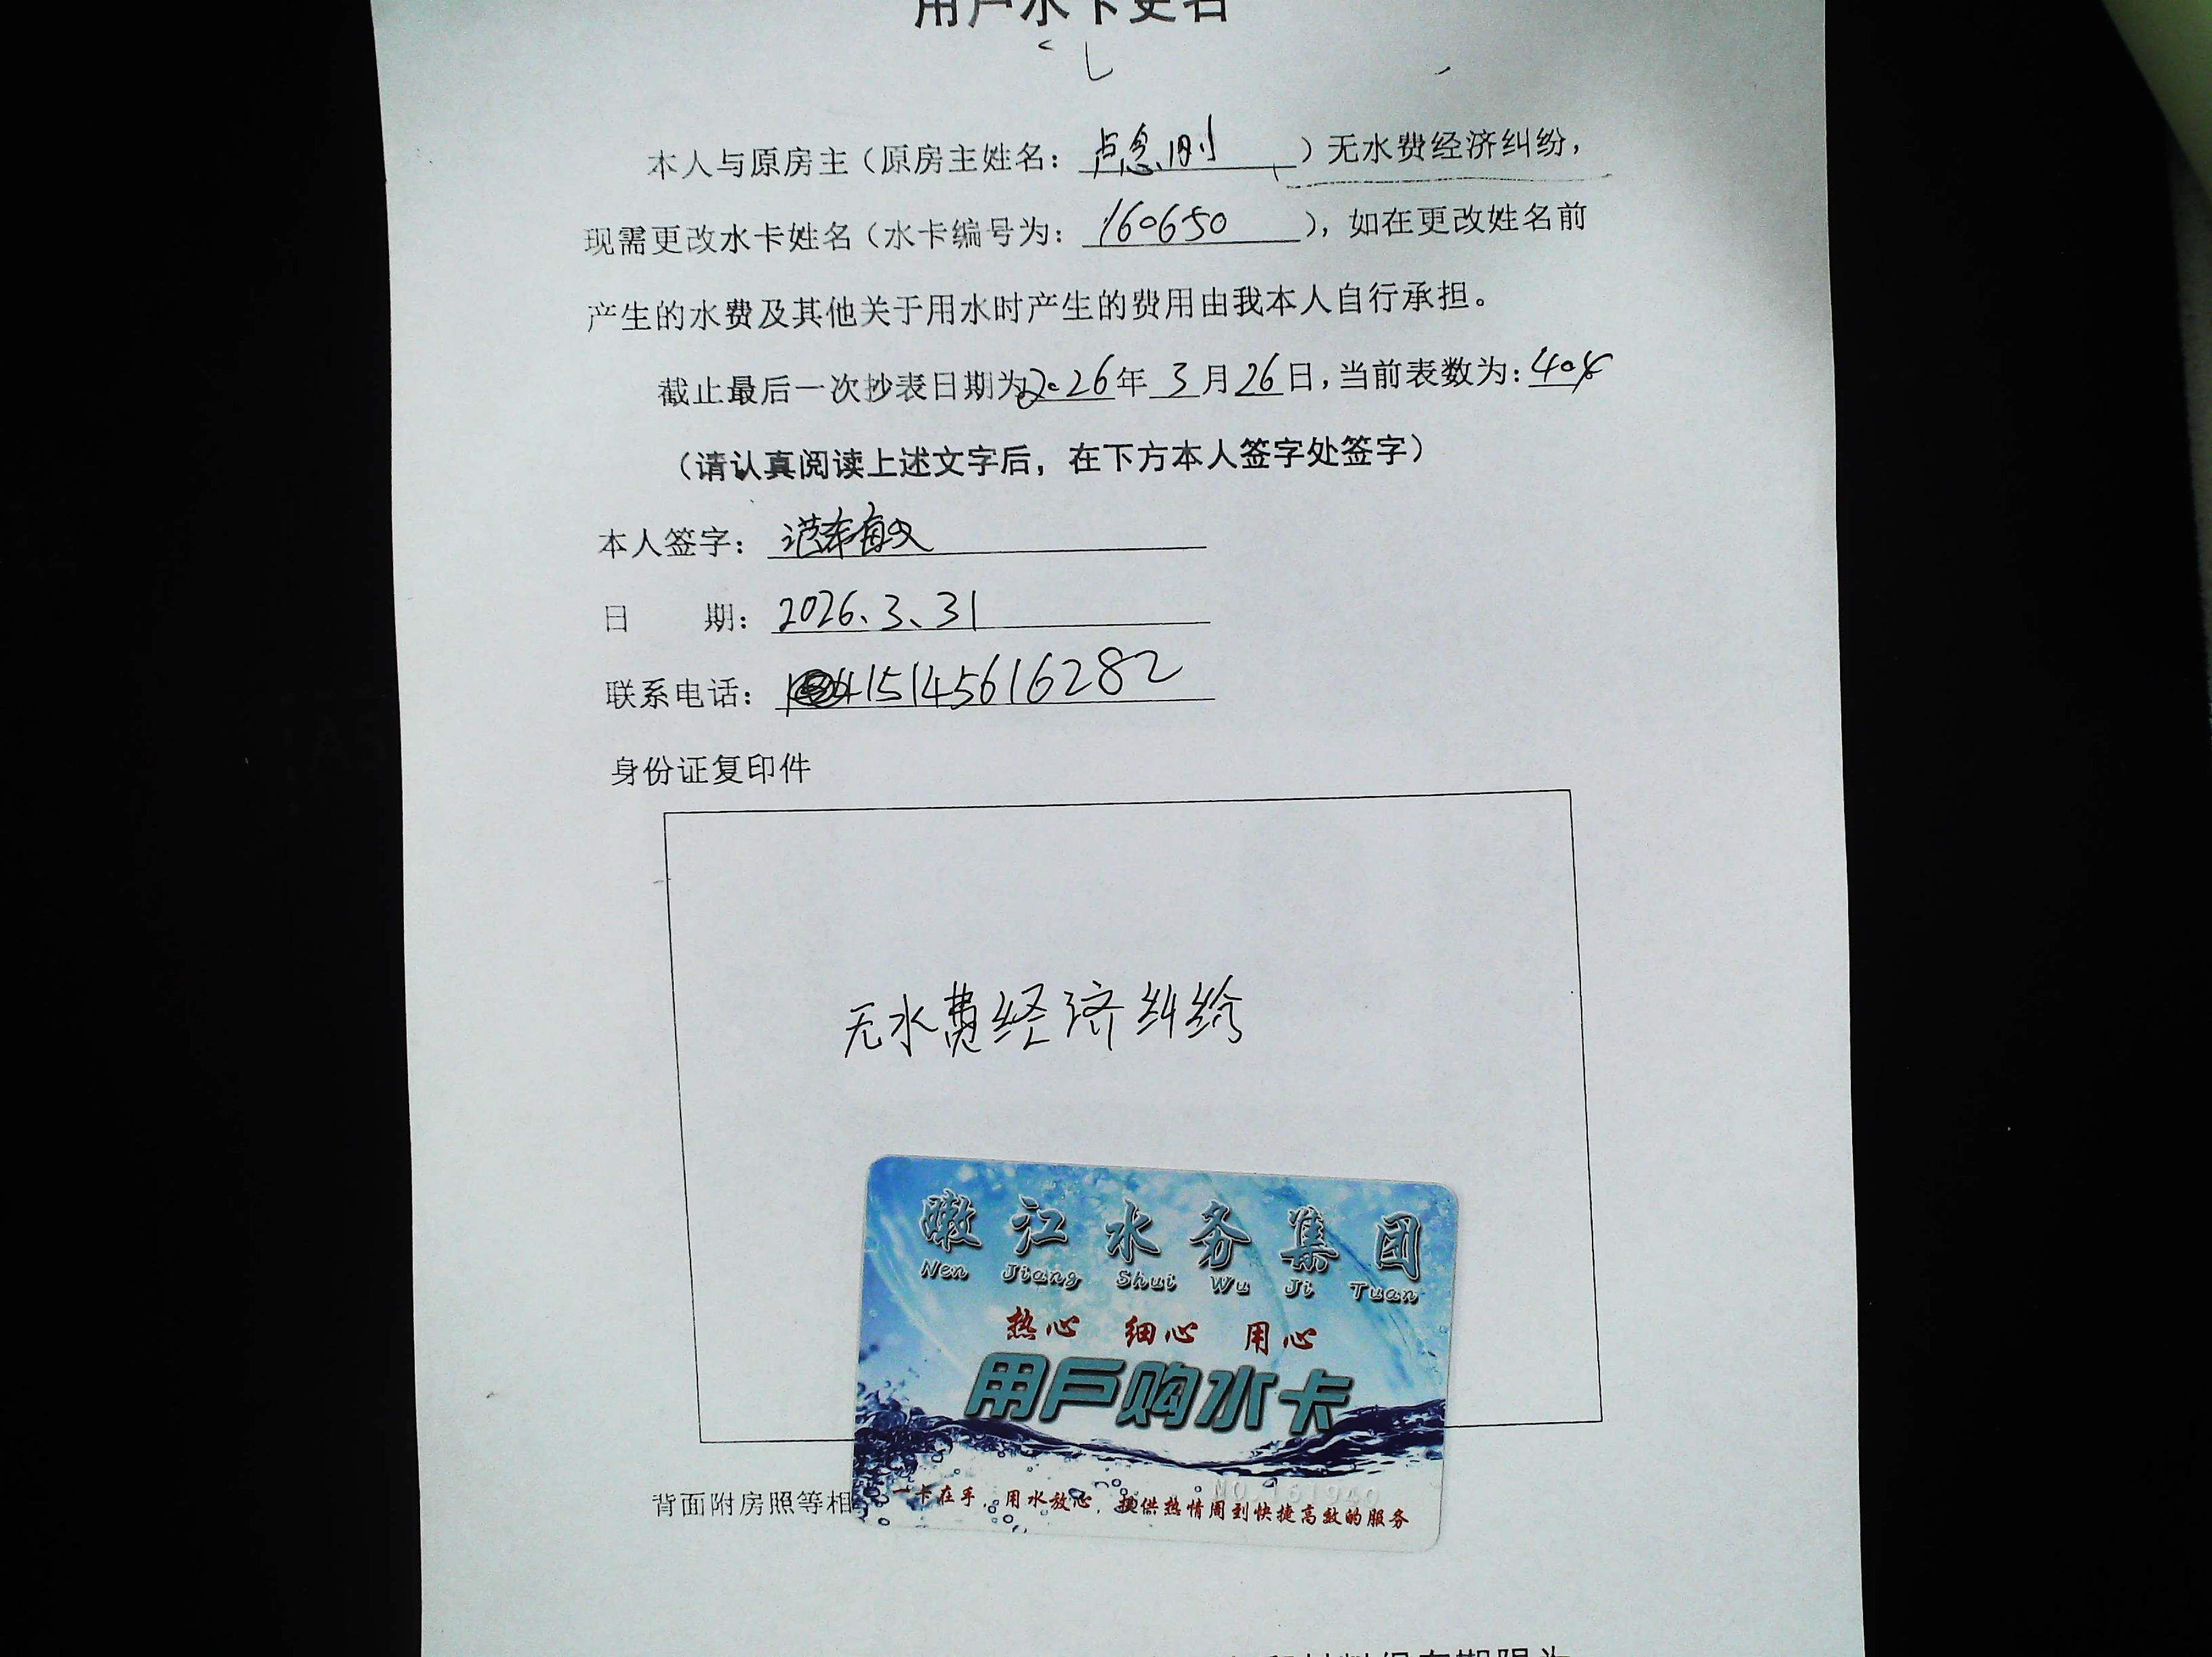 用户水卡更名
本人与原房主（原房主姓名：卢念刚）无水费经济纠纷，
现需更改水卡姓名（水卡编号为：160650），如在更改姓名前
产生的水费及其他关于用水时产生的费用由我本人自行承担。
截止最后一次抄表日期为2026年3月26日，当前表数为：404
（请认真阅读上述文字后，在下方本人签字处签字）
本人签字：
日 期：2026、3、31
联系电话：15145616282
身份证复印件
无水费经济纠纷
嫩江水务集团
Nen Jiang Shui Wu Ji Tuan
热心 细心 用心
用户购水卡
NO.161940
一卡在手，用水放心，提供热情周到快捷高效的服务
背面附房照等相